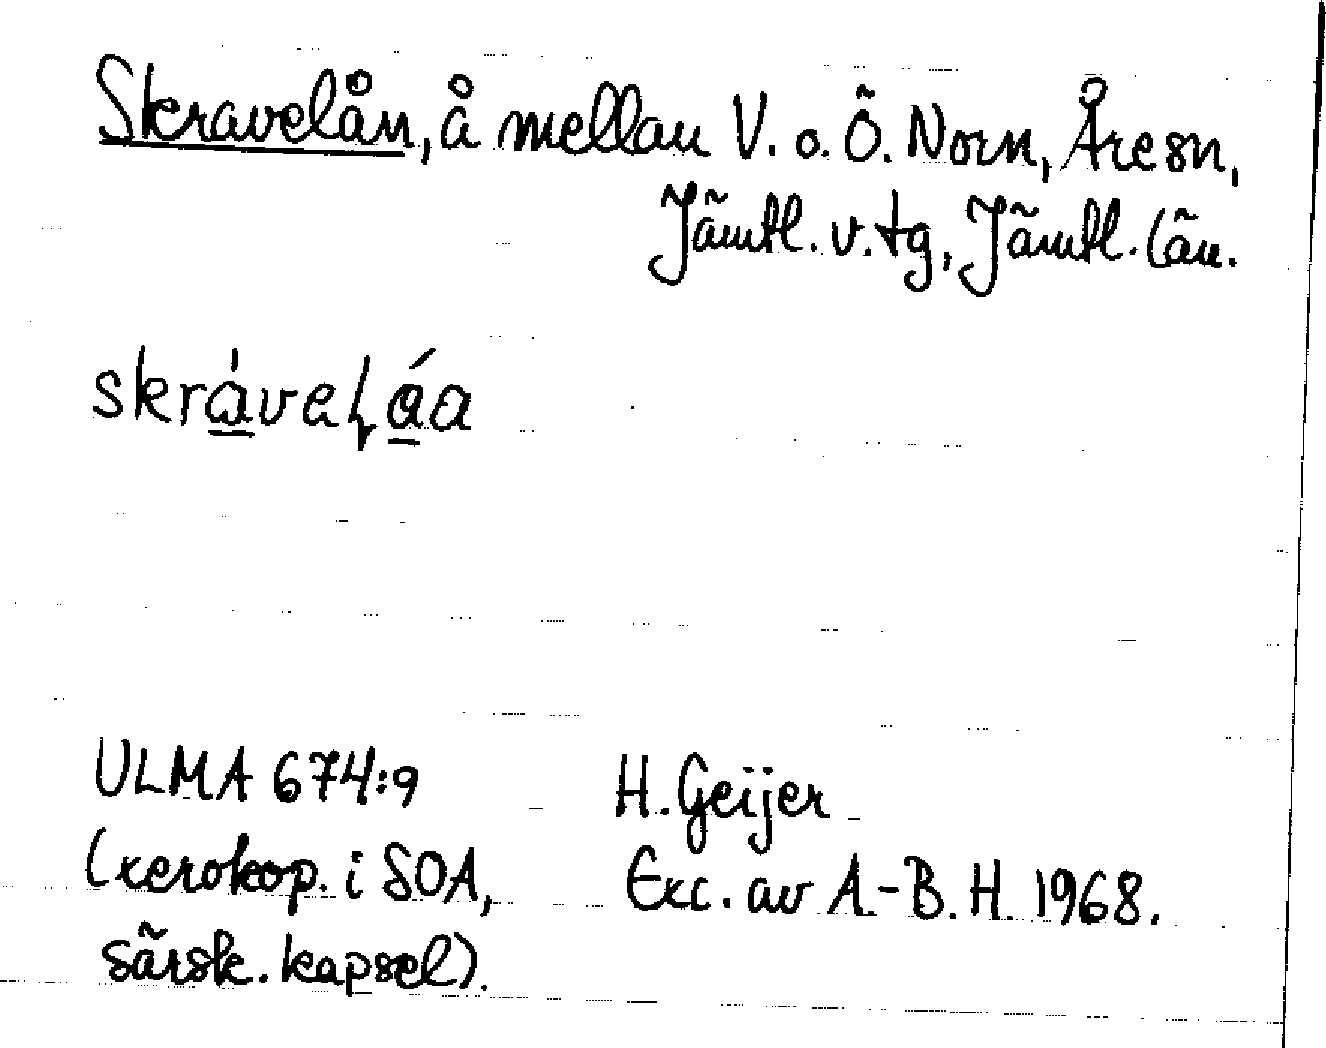 Skravelån, å mellan V. o. Ö. Norn, Åresn,
Jämtl. v. tg, Jämtl. län.
skrávaḷáa
ULMA 674:9
H. Geijer
(xerokop. i SOA,
Exc. av A.-B. H. 1968.
särsk. kapsel).